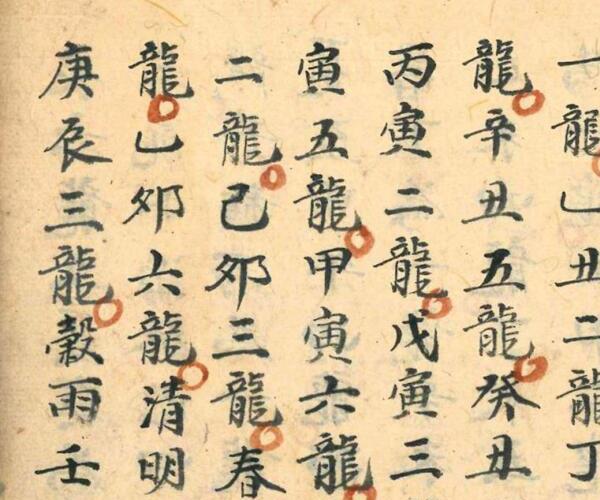 一龍乙丑二龍丁
龍辛丑五龍癸丑
丙寅二龍戊寅三
寅五龍甲寅六龍
二龍己卯三龍春
龍乙卯六龍清明
庚辰三龍穀雨壬